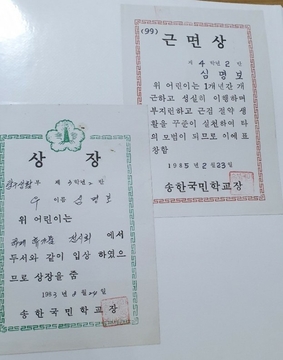 (99)
근면상
제 4 학년 2 반
심명보
위 어린이는 1개년간 개
근하고 성실히 이행하며
부지런하고 근검 절약 생
활을 꾸준히 실천하여 타
의 모범이 되므로 이에 표
창함
1985년 2월 23일
송한국민학교장
상 장
제 6학년 2 반
이름 심명보
위 어린이는
전시회 에서
두서와 같이 입상 하였으
므로 상장을 줌
송한국민학교장